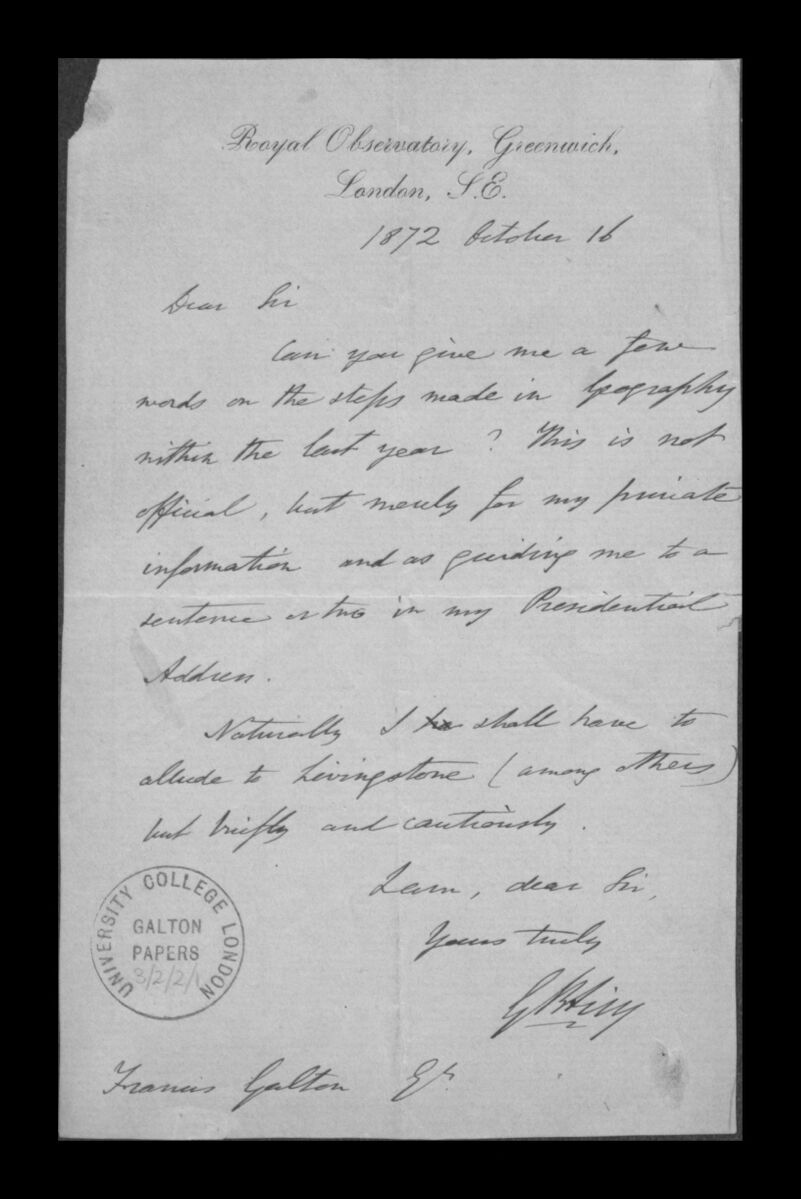 Royal Observatory, Greenwich,
London, S.E.
1872 October 16
Dear Sir
Can you give me a few
words on the steps made in Geography
within the last year? This is not
official, but merely for my private
information and as guiding me to a
sentence or two in my Presidential
Address.
Naturally I ha shall have to
allude to Livingstone (among others)
but briefly and cautiously.
I am, dear Sir,
Yours truly
G B Airy
UNIVERSITY COLLEGE LONDON
GALTON
PAPERS
3/2/2/1
Francis Galton Esq.